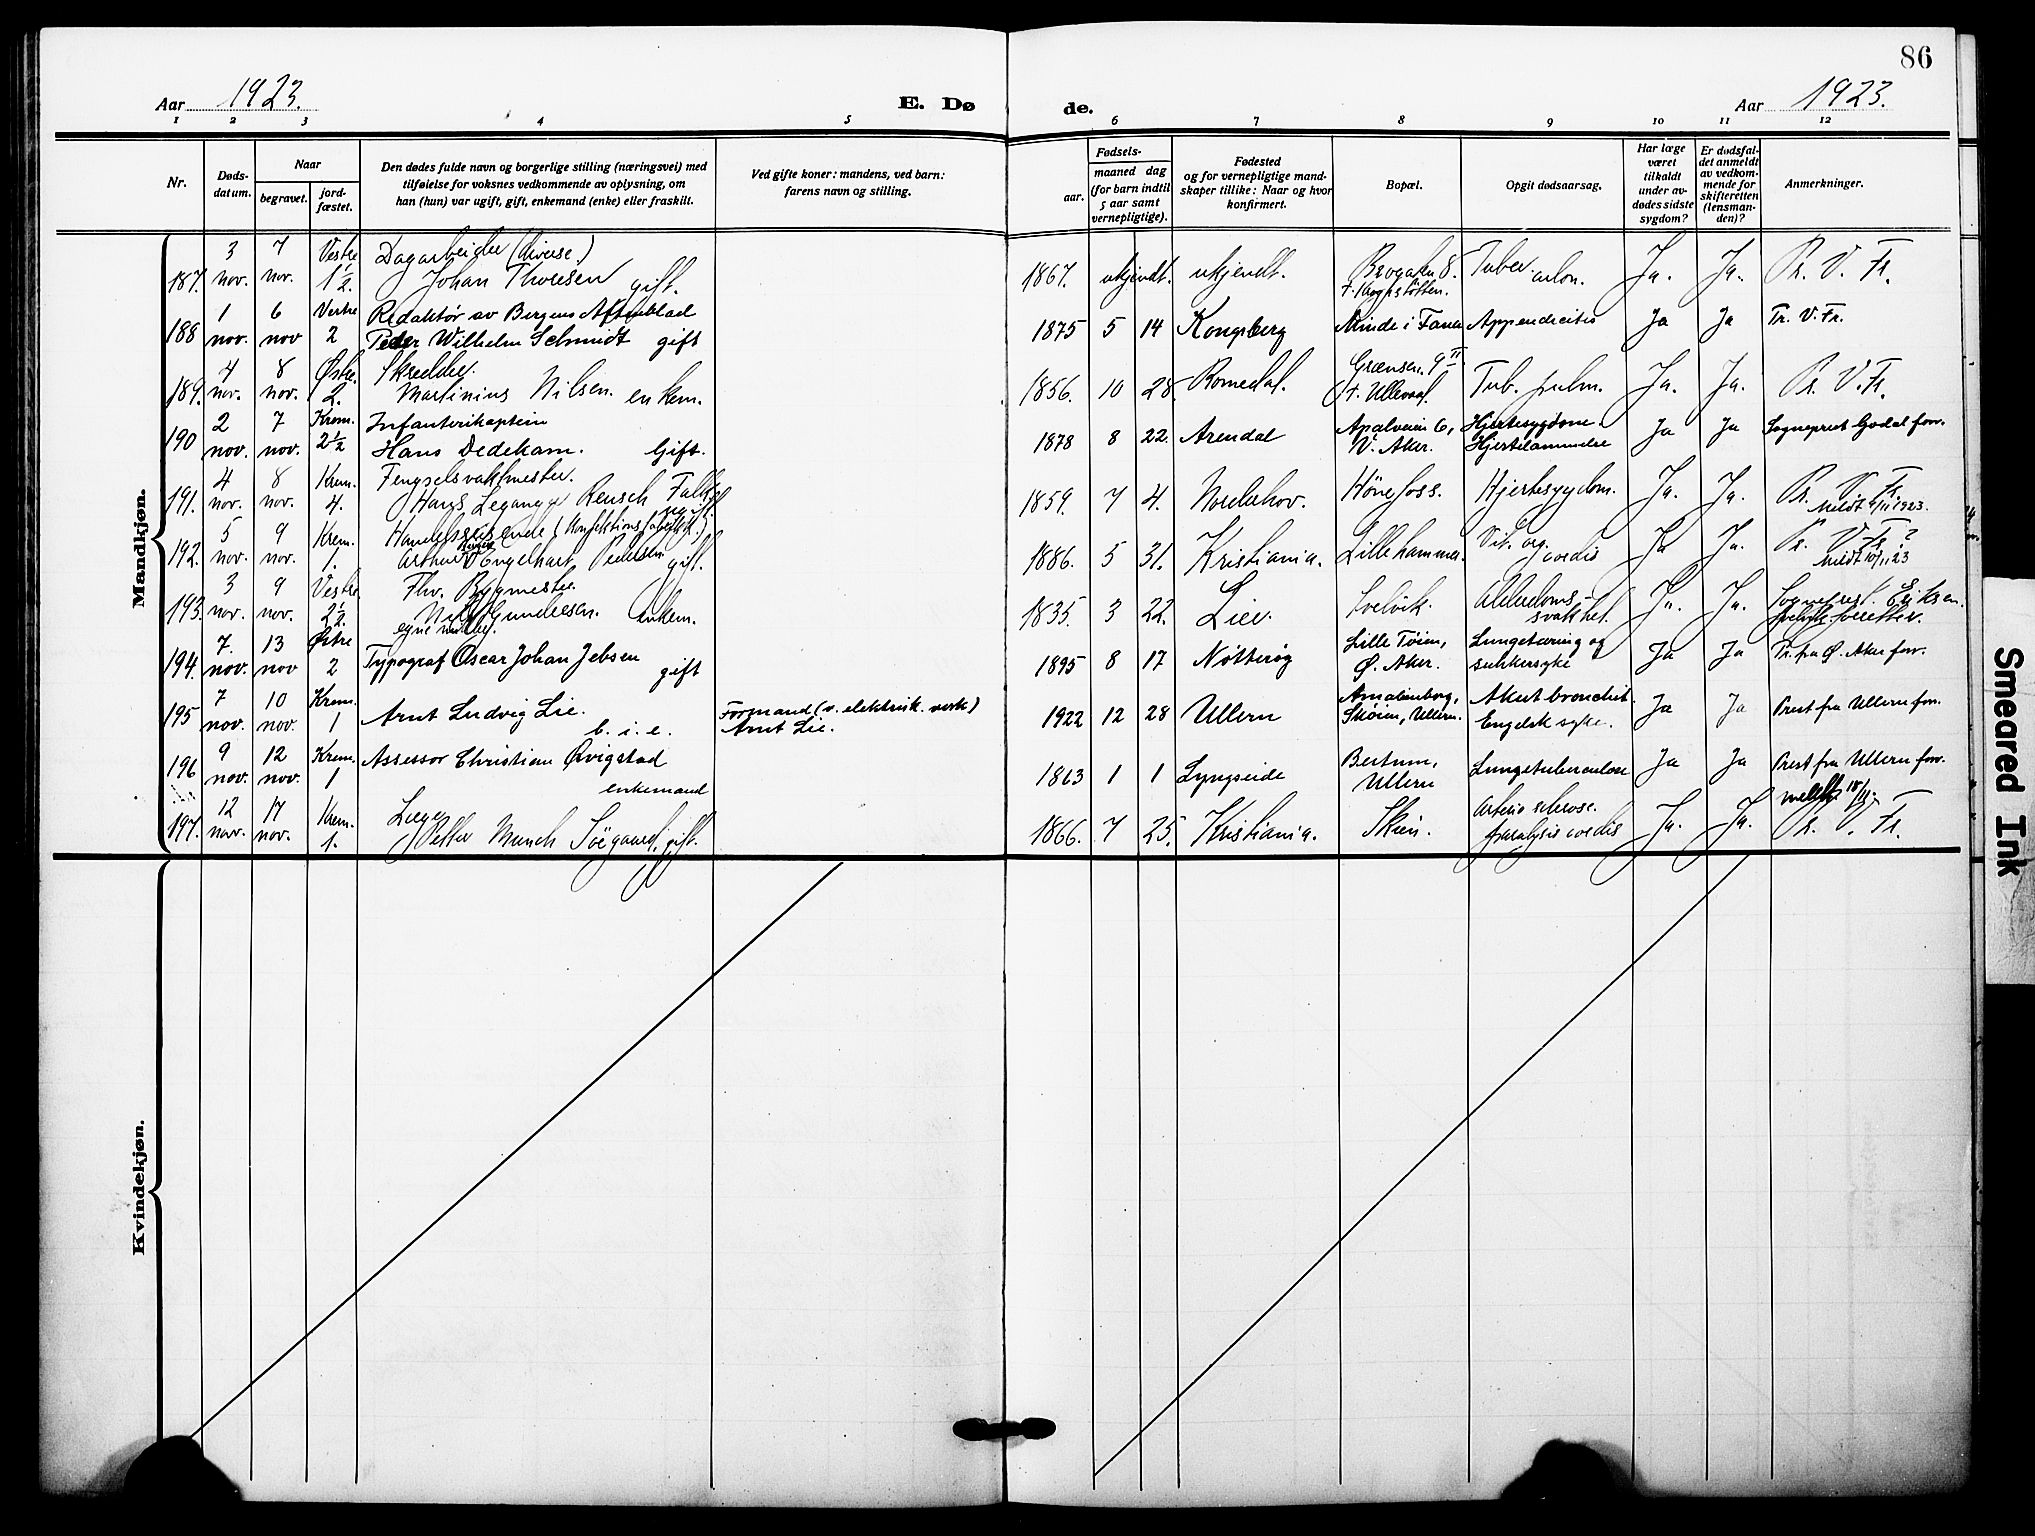 86
Aar 1923.
E. Dø
de.
Aar 1923.
1 2 3 4 5 6 7 8 9 10 11 12
Nr.
Døds-
datum.
Naar
begravet.
jord-
fæstet.
Den dødes fulde navn og borgerlige stilling (næringsvei) med
tilføielse for voksnes vedkommende av oplysning, om
han (hun) var ugift, gift, enkemand (enke) eller fraskilt.
Ved gifte koner: mandens, ved barn:
farens navn og stilling.
Fødsels-
aar.
maaned dag
(for barn indtil
5 aar samt
vernepligtige).
Fødested
og for vernepligtige mand-
skaper tillike: Naar og hvor
konfirmert.
Bopæl.
Opgit dødsaarsag.
Har læge
været
tilkaldt
under av-
dødes sidste
sygdom?
Er dødsfal-
det anmeldt
av vedkom-
mende for
skifteretten
(lensman-
den)?
Anmerkninger.
Mandkjøn.
3 7 Vestre Dagarbeider (diverse.)
187. nov. nov. 1½. Johan Thoresen gift. 1867. ukjendt. ukjendt. Brogaten 8. Tuber. Ja. Ja. Pr. V. Fr.
1 6 Vestre Redaktør av Bergens Aftenblad
188 nov. nov 2 Peder Wilhelm Schmidt gift 1875 5 14 Kongsberg Minde i Fana Appendicitis Ja Ja Pr. V. Fr.
4 8 Østre. Skredder. Grænsen. 9 II
189. nov. nov. 2. Martinius Nilsen. enkem. 1856. 10 28. Romedal. Ullevaal. Tub. pulm. Ja. Ja. Pr. V. Fr.
2 7 Krem. Infanterikaptein Apalveien 6, Hjertesygdom.
190 nov. nov. 2½ Hans Dedekam. Gift. 1878 8 22. Arendal V. Aker. Hjertelammelse Ja Ja Sogneprest Godal forr.
4 8 Krem. Fengselsvaktmester.
191. nov. nov. 4. Hans Reusch 1859. 7 4. Norderhov. Hønefoss. Hjertesygdom. Ja. Ja. Pr. V. Fr.
5 9 Krem. Handelsreisende
192. nov. nov. 1. Engelhart Pedersen gift. 1886. 5 31. Kristiania. Lillehammer. Vit. org. cordis Ja Ja. Pr. V. Fr. ?
3 9 Vestre Fhv. Bygmester
193. nov. nov. 2½. Nils Gundersen. Enkem. 1835. 3 22. Lier. Svelvik. Alderdoms-
svakhet. Ja. Ja. Sogneprest. Eriksen.
7. 13 Østre Lille Tøien, Lungetæring og
194. nov. nov 2 Typograf Oscar Johan Jebsen gift 1895 8 17 Nøtterøy Ø. Aker. sukkersyke Ja Ja Pr. fra Ø. Aker forr.
7 10 Krem. Formand (v. elektrisk. verk) Amalienborg, Akut bronchit.
195 nov. nov. 1 Arnt Ludvig Lie. b. i. e. Arnt Lie. 1922 12 28 Ullern Skøien, Ullern. Engelsk syke. Ja Ja Prest fra Ullern forr.
9 12 Krem. Assessor Christian Qvigstad Bestum,
196 nov. nov. 1 enkemand 1863 1 1 Lyngseide Ullern Lungetuberculose Ja Ja Prest fra Ullern forr.
12 17 Krem. Læge Arterio sclerose.
197. nov. nov. 1. Petter Munch Søegaard, gift. 1866. 7 25. Kristiania. Skien. paralysis cordis Ja. Ja. Pr. V. Fr.
Kvindekjøn.
Smeared Ink